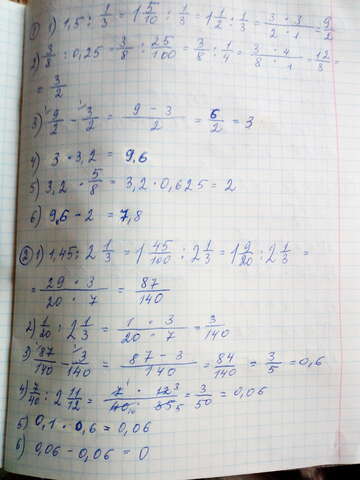 ① 1) 1,5 : 1/3 = 1 5/10 : 1/3 = 1 1/2 : 1/3 = 3·3/2·1 = 9/2
2) 3/8 : 0,25 = 3/8 : 25/100 = 3/8 : 1/4 = 3·4/8·1 = 12/8 =
= 3/2
3) 9/2 - 3/2 = 9-3/2 = 6/2 = 3
4) 3 · 3,2 = 9,6
5) 3,2 · 5/8 = 3,2 · 0,625 = 2
6) 9,6 - 2 = 7,8
② 1) 1,45 : 2 1/3 = 1 45/100 : 2 1/3 = 1 9/20 : 2 1/3 =
= 29·3/20·7 = 87/140
2) 1/20 : 2 1/3 = 1·3/20·7 = 3/140
3) 87/140 - 3/140 = 87-3/140 = 84/140 = 3/5 = 0,6
4) 7/40 : 2 11/12 = 7·12/40·35 = 3/50 = 0,06
5) 0,1 · 0,6 = 0,06
6) 0,06 - 0,06 = 0